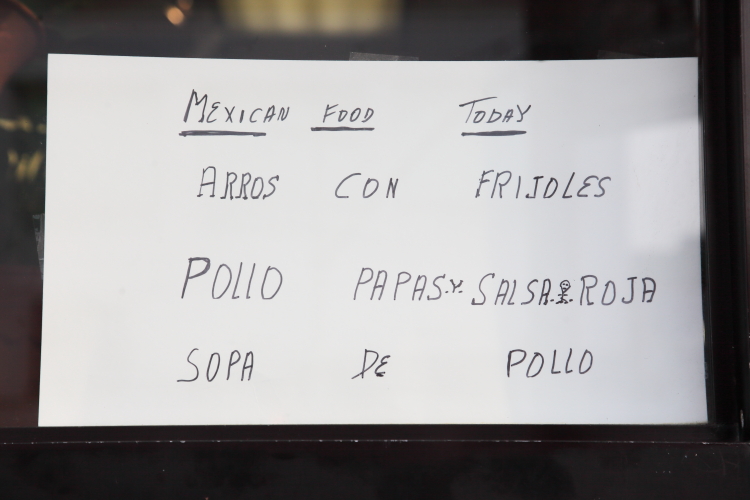 MEXICAN FOOD TODAY
ARROS CON FRIJOLES
POLLO PAPAS.Y. SALSA ROJA
SOPA DE POLLO